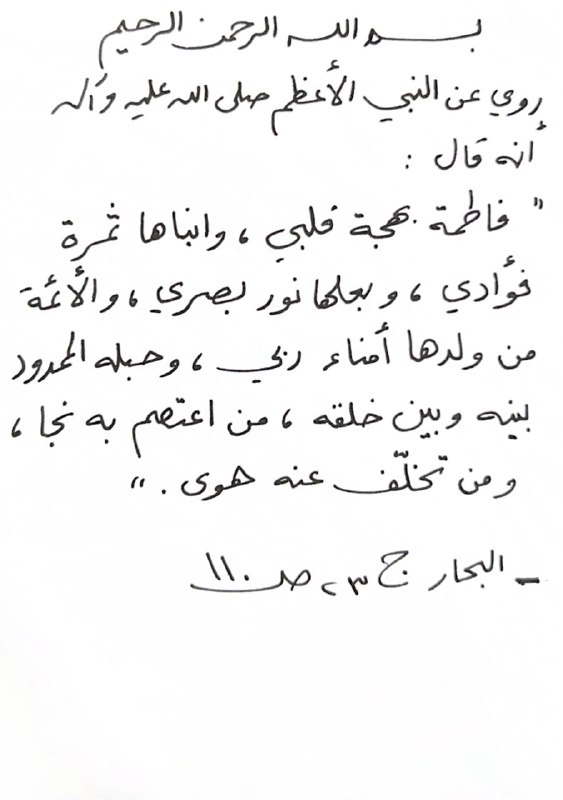 بسم الله الرحمن الرحيم
روي عن النبي الأعظم صلى الله عليه وآله
أنه قال :
" فاطمة بهجة قلبي ، وابناها ثمرة
فؤادي ، وبعلها نور بصري ، والأئمة
من ولدها أمناء ربي ، وحبله الممدود
بينه وبين خلقه ، من اعتصم به نجا ،
ومن تخلّف عنه هوى . "
- البحار ج ٢٣ ص ١١٠